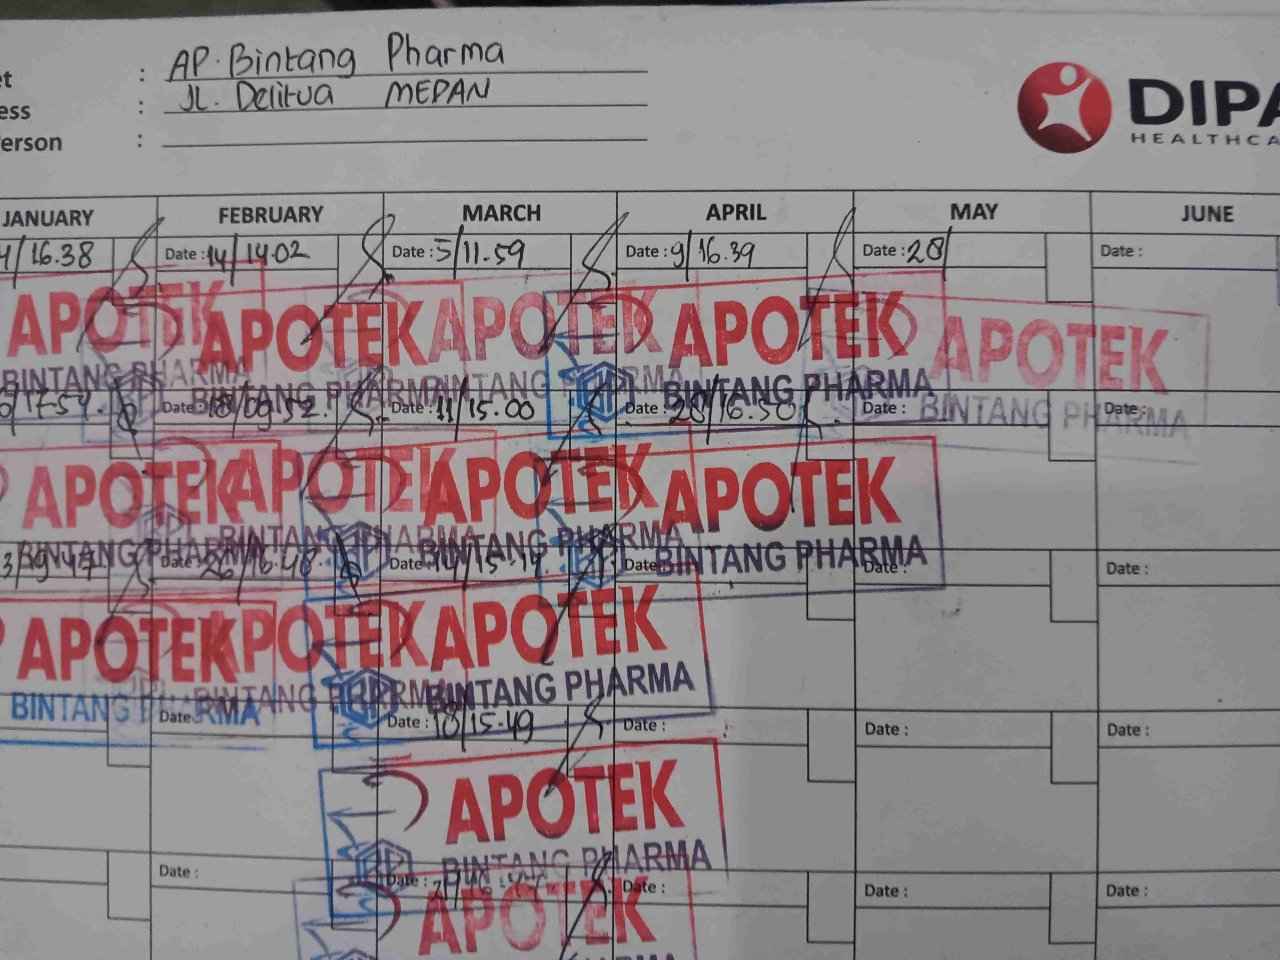 et : AP. Bintang Pharma
ess : JL. Delitua MEDAN
erson :
DIPA
HEALTHCA
JANUARY FEBRUARY MARCH APRIL MAY JUNE
4/16.38 Date : 14/14.02 Date : 5/11.59 Date : 9/16.39 Date : 28/ Date :
APOTEK APOTEK APOTEK APOTEK APOTEK
BINTANG PHARMA BINTANG PHARMA BINTANG PHARMA BINTANG PHARMA BINTANG PHARMA
Date : Date : 11/15.00 Date : 28/16.50 Date : Date :
APOTEK APOTEK APOTEK APOTEK
BINTANG PHARMA BINTANG PHARMA BINTANG PHARMA BINTANG PHARMA
Date : 26/16.48 Date : Date : Date : Date :
APOTEK APOTEK APOTEK
BINTANG PHARMA BINTANG PHARMA BINTANG PHARMA
Date : Date : 18/15.49 Date : Date : Date :
APOTEK
BINTANG PHARMA
Date : Date : Date : Date : Date :
APOTEK